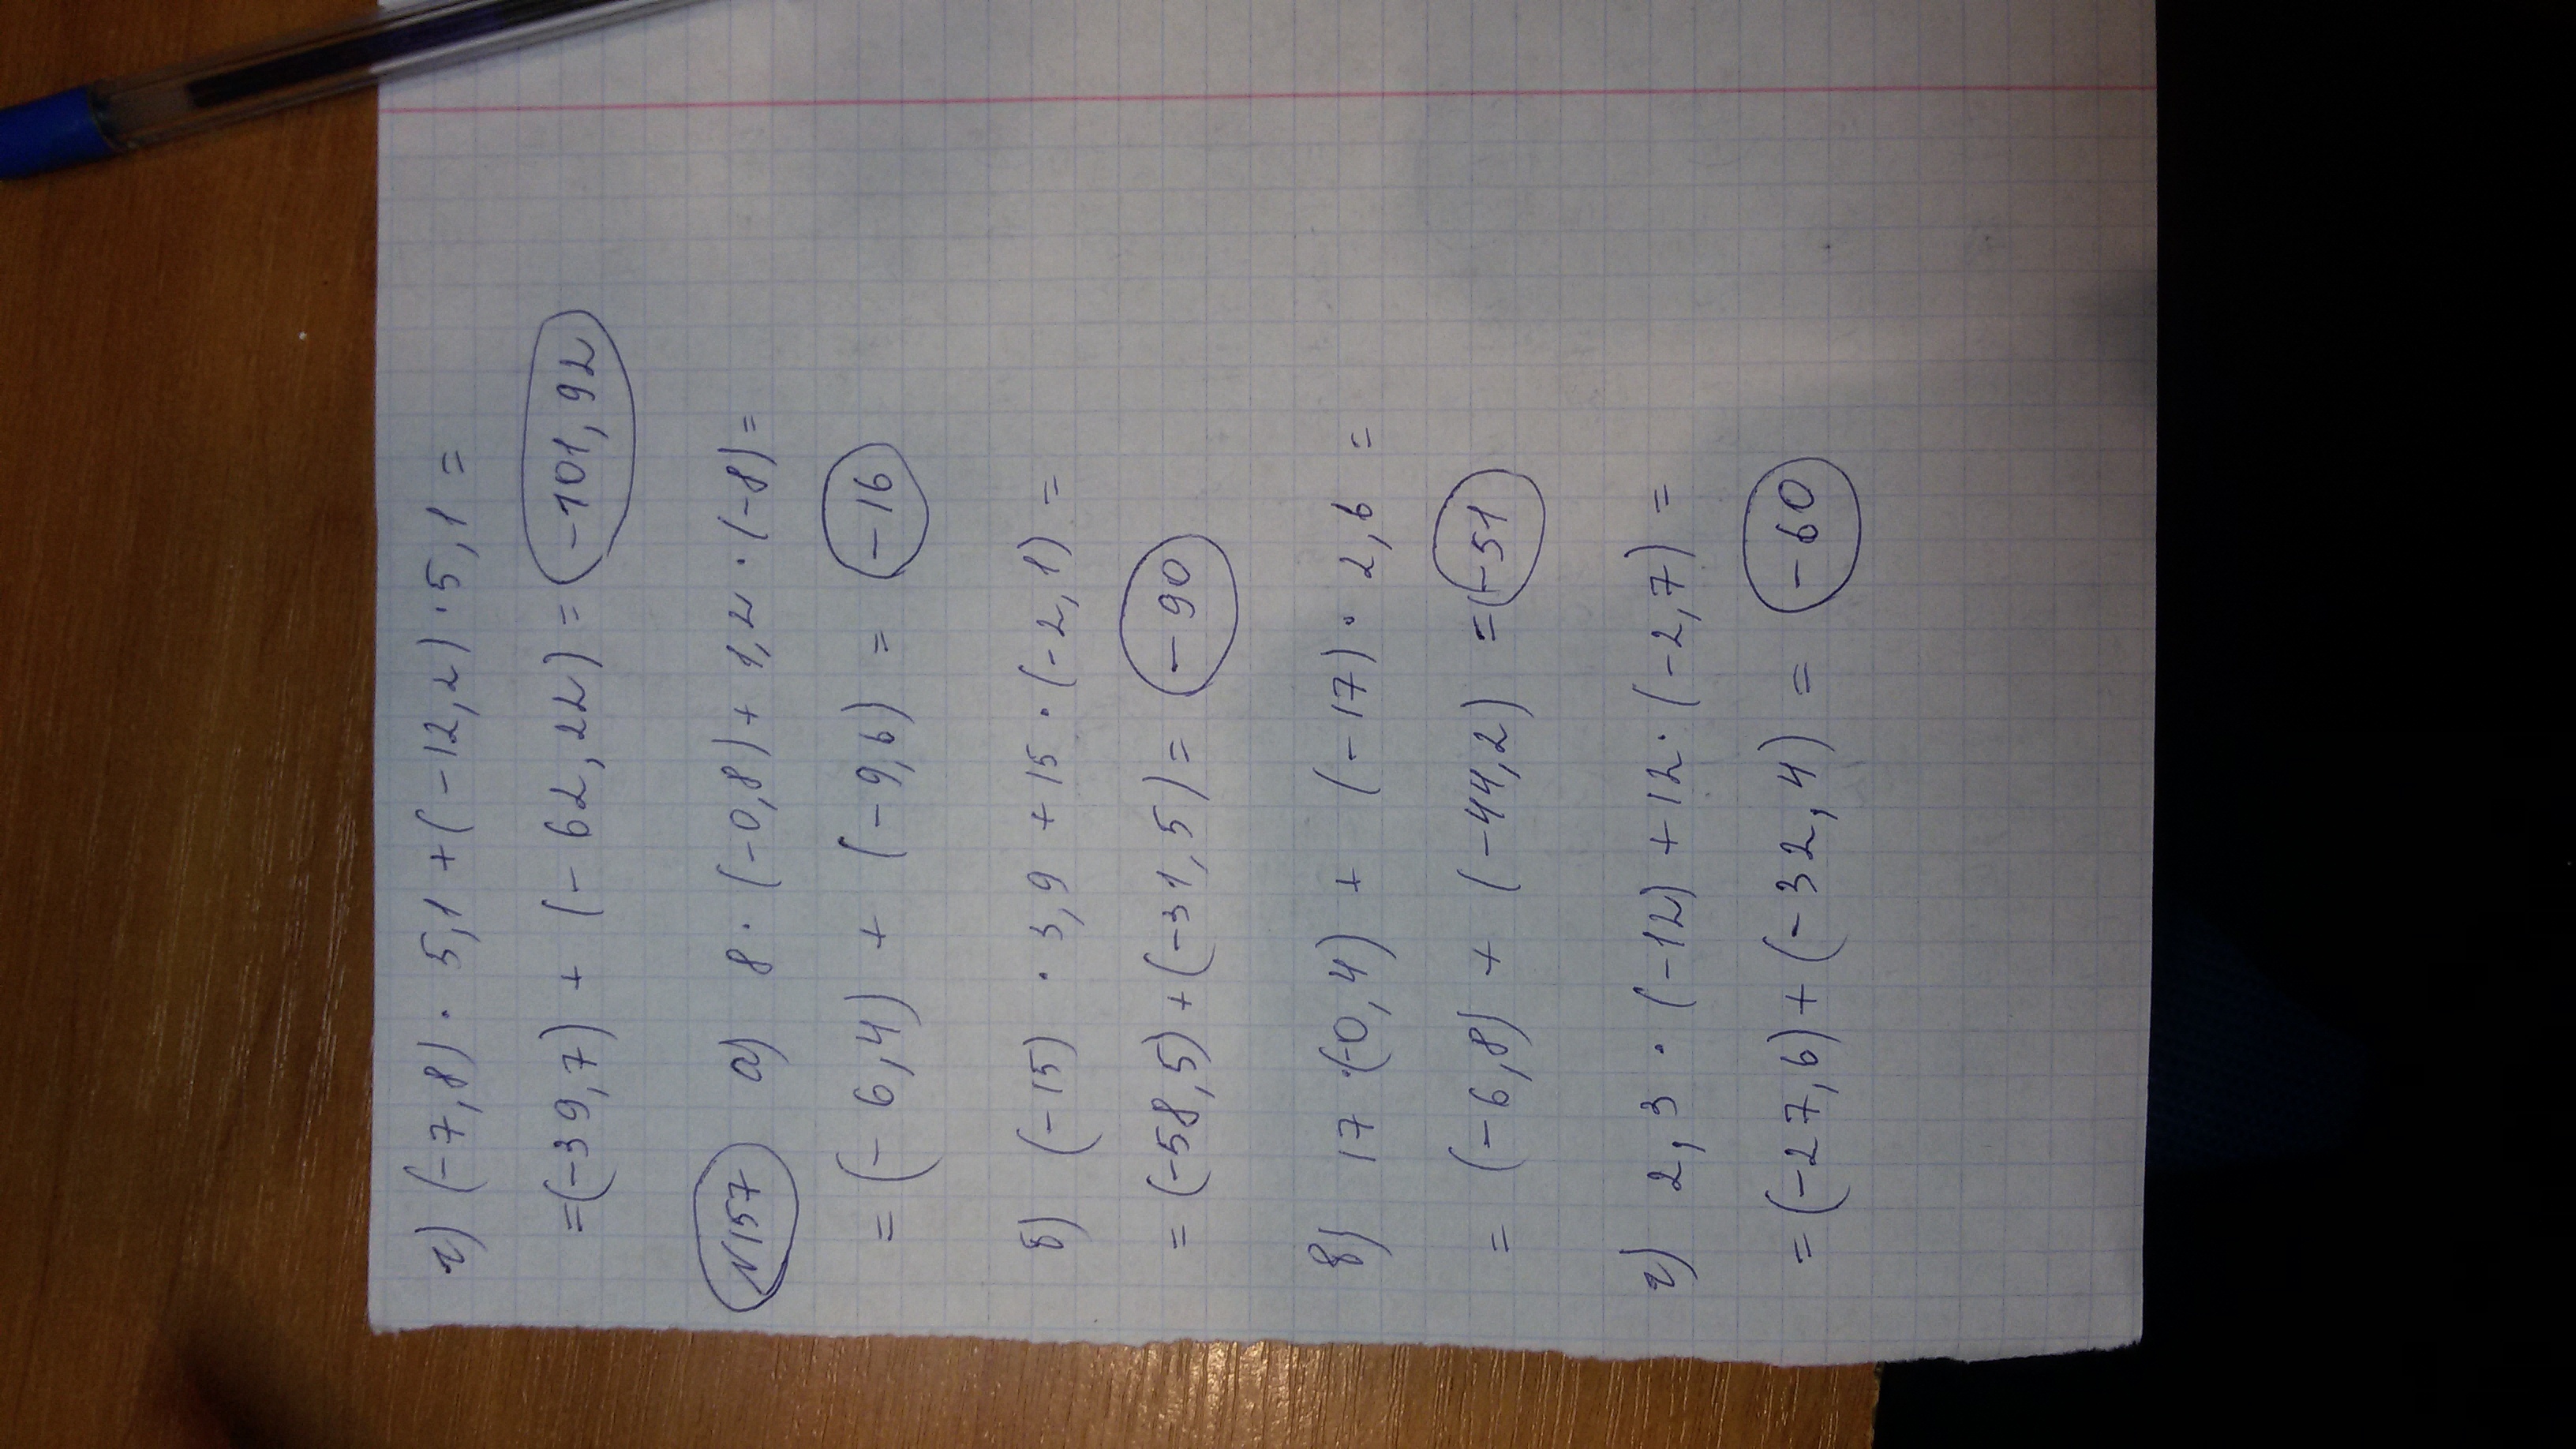 г) (-7,8) · 5,1 + (-12,2) · 5,1 =
=(-39,7) + (-62,22) = -101,92
N157 а) 8 · (-0,8) + 1,2 · (-8) =
= (-6,4) + (-9,6) = -16
б) (-15) · 3,9 + 15 · (-2,1) =
= (-58,5) + (-31,5) = -90
в) 17 ·(-0,4) + (-17) · 2,6 =
= (-6,8) + (-44,2) = -51
г) 2,3 · (-12) + 12 · (-2,7) =
= (-27,6) + (-32,4) = -60